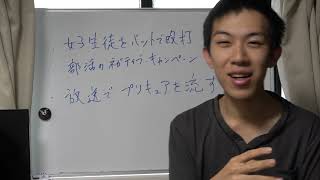 女子生徒をバットで殴打
部活のネガティブキャンペーン
・放送でプリキュアを流す